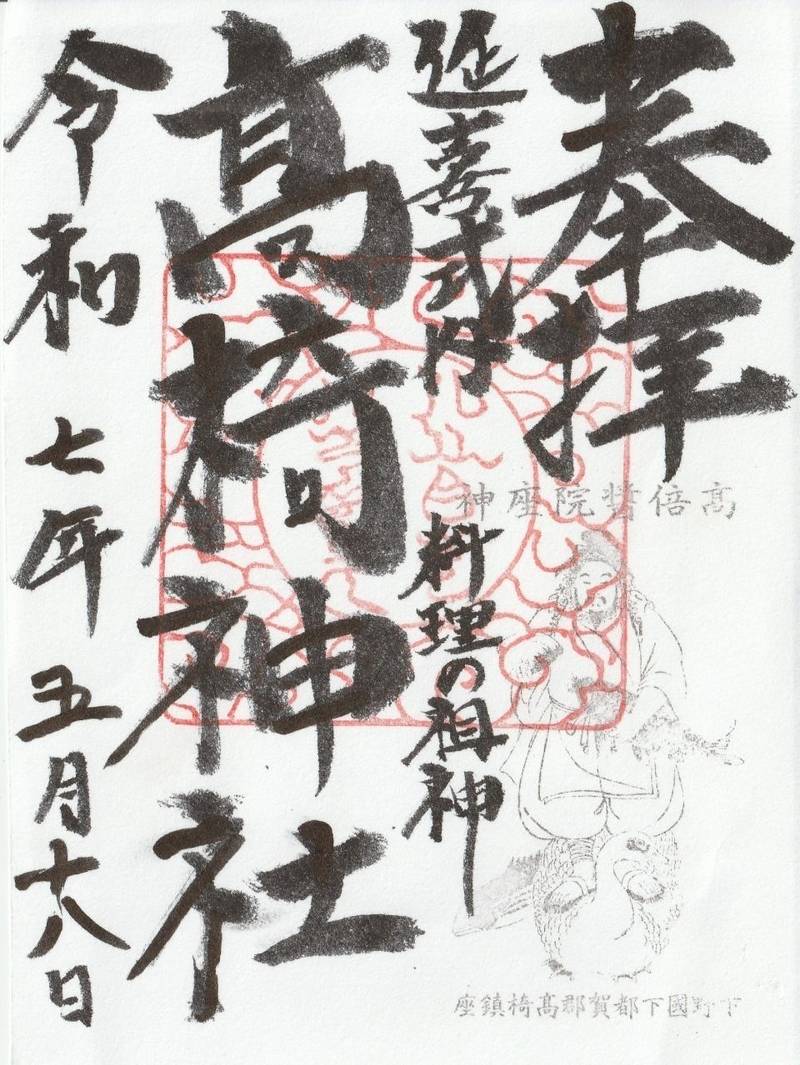 奉拝
延喜式内
料理の祖神
高椅神社
令和七年五月十八日
神座院醤倍髙
座鎮椅髙郡賀都下國野下